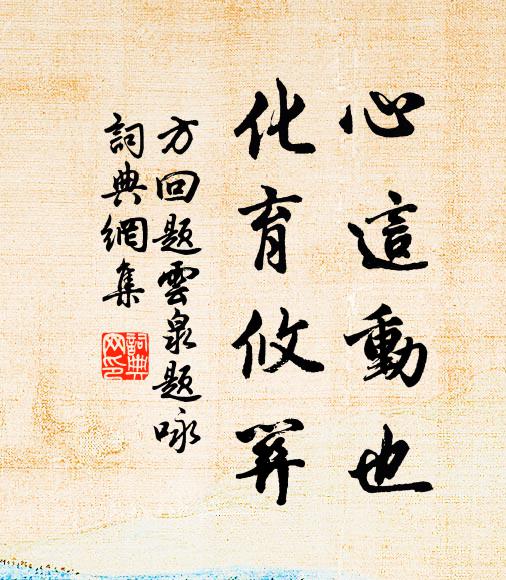 心這動也
化育攸開
方回題雲泉題咏
詞典網集
詞典
网印